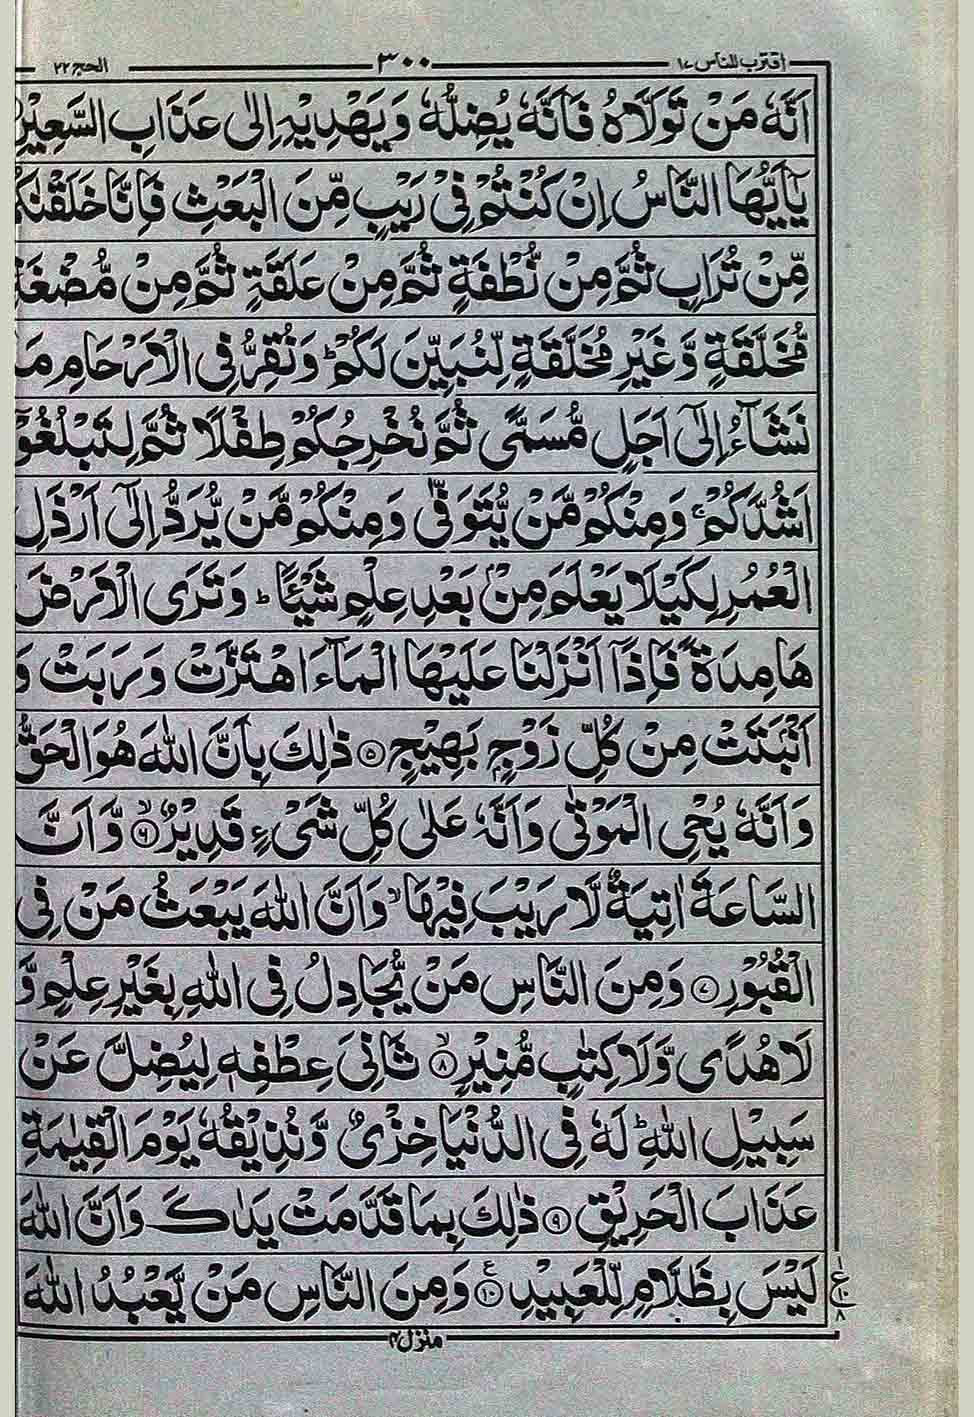 اقترب للناس ۱۷ ۳۰۰ الحج ۲۲
اَنَّهٗ مَنْ تَوَلَّاهُ فَاَنَّهٗ يُضِلُّهٗ وَيَهْدِيْهِ اِلٰى عَذَابِ السَّعِيْرِ
يٰۤاَيُّهَا النَّاسُ اِنْ كُنْتُمْ فِيْ رَيْبٍ مِّنَ الْبَعْثِ فَاِنَّا خَلَقْنٰكُمْ
مِّنْ تُرَابٍ ثُمَّ مِنْ نُّطْفَةٍ ثُمَّ مِنْ عَلَقَةٍ ثُمَّ مِنْ مُّضْغَةٍ
مُّخَلَّقَةٍ وَّغَيْرِ مُخَلَّقَةٍ لِّنُبَيِّنَ لَكُمْ ؕ وَنُقِرُّ فِى الْاَرْحَامِ مَا
نَشَآءُ اِلٰٓى اَجَلٍ مُّسَمًّى ثُمَّ نُخْرِجُكُمْ طِفْلًا ثُمَّ لِتَبْلُغُوْۤا
اَشُدَّكُمْ ۚ وَمِنْكُمْ مَّنْ يُّتَوَفّٰى وَمِنْكُمْ مَّنْ يُّرَدُّ اِلٰٓى اَرْذَلِ
الْعُمُرِ لِكَيْلَا يَعْلَمَ مِنْۢ بَعْدِ عِلْمٍ شَيْئًا ؕ وَتَرَى الْاَرْضَ
هَامِدَةً فَاِذَاۤ اَنْزَلْنَا عَلَيْهَا الْمَآءَ اهْتَزَّتْ وَرَبَتْ وَ
اَنْۢبَتَتْ مِنْ كُلِّ زَوْجٍۭ بَهِيْجٍ ۵ ذٰلِكَ بِاَنَّ اللّٰهَ هُوَ الْحَقُّ
وَاَنَّهٗ يُحْىِ الْمَوْتٰى وَاَنَّهٗ عَلٰى كُلِّ شَىْءٍ قَدِيْرٌ ۙ ۶ وَّاَنَّ
السَّاعَةَ اٰتِيَةٌ لَّا رَيْبَ فِيْهَا ۙ وَاَنَّ اللّٰهَ يَبْعَثُ مَنْ فِى
الْقُبُوْرِ ۷ وَمِنَ النَّاسِ مَنْ يُّجَادِلُ فِى اللّٰهِ بِغَيْرِ عِلْمٍ وَّ
لَا هُدًى وَّلَا كِتٰبٍ مُّنِيْرٍ ۙ ۸ ثَانِىَ عِطْفِهٖ لِيُضِلَّ عَنْ
سَبِيْلِ اللّٰهِ ؕ لَهٗ فِى الدُّنْيَا خِزْىٌ وَّنُذِيْقُهٗ يَوْمَ الْقِيٰمَةِ
عَذَابَ الْحَرِيْقِ ۹ ذٰلِكَ بِمَا قَدَّمَتْ يَدٰكَ وَاَنَّ اللّٰهَ
لَيْسَ بِظَلَّامٍ لِّلْعَبِيْدِ ۱۰ ع وَمِنَ النَّاسِ مَنْ يَّعْبُدُ اللّٰهَ
ع ۱۰ ۸
منزل ۴